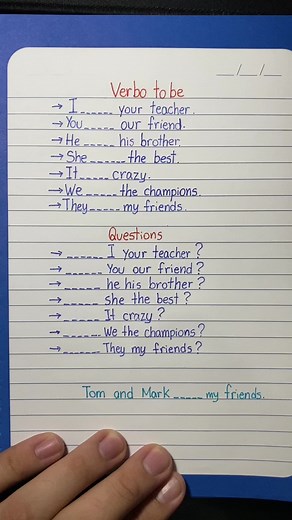 __/__/__
Verbo to be
→ I ______ your teacher.
→ You _____ our friend.
→ He _____ his brother.
→ She ______ the best.
→ It _____ crazy.
→ We _____ the champions.
→ They _____ my friends.
Questions
→ ______ I your teacher?
→ _____ You our friend?
→ _____ he his brother?
→ _____ she the best?
→ _____ It crazy?
→ ______ We the champions?
→ ______ They my friends?
Tom and Mark _____ my friends.